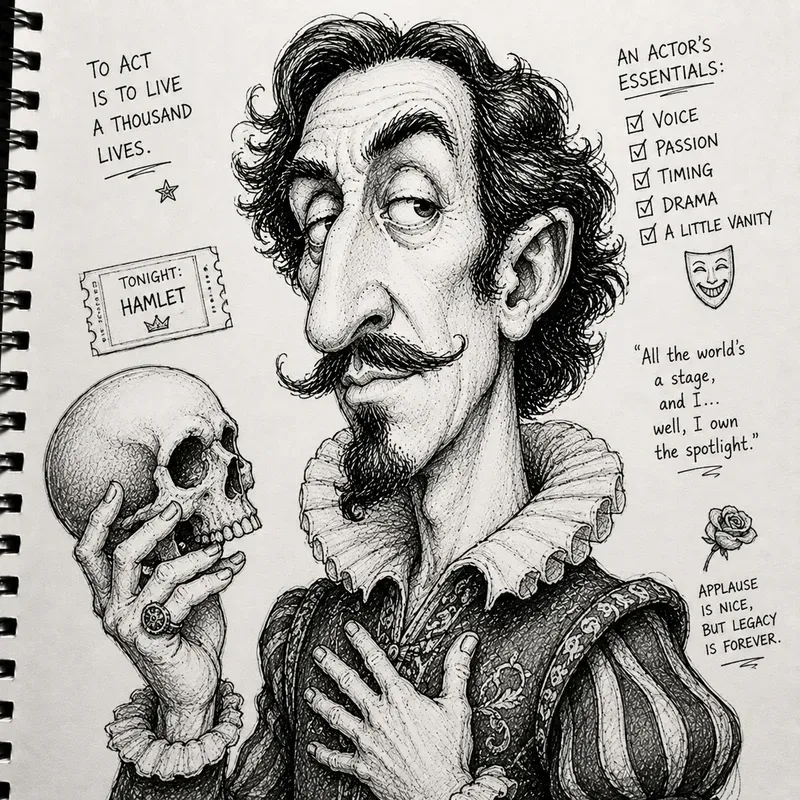 TO ACT
IS TO LIVE
A THOUSAND
LIVES.
AN ACTOR'S
ESSENTIALS:
VOICE
PASSION
TIMING
DRAMA
A LITTLE VANITY
TONIGHT:
HAMLET
"All the world's
a stage,
and I...
well, I own
the spotlight."
APPLAUSE
IS NICE,
BUT LEGACY
IS FOREVER.